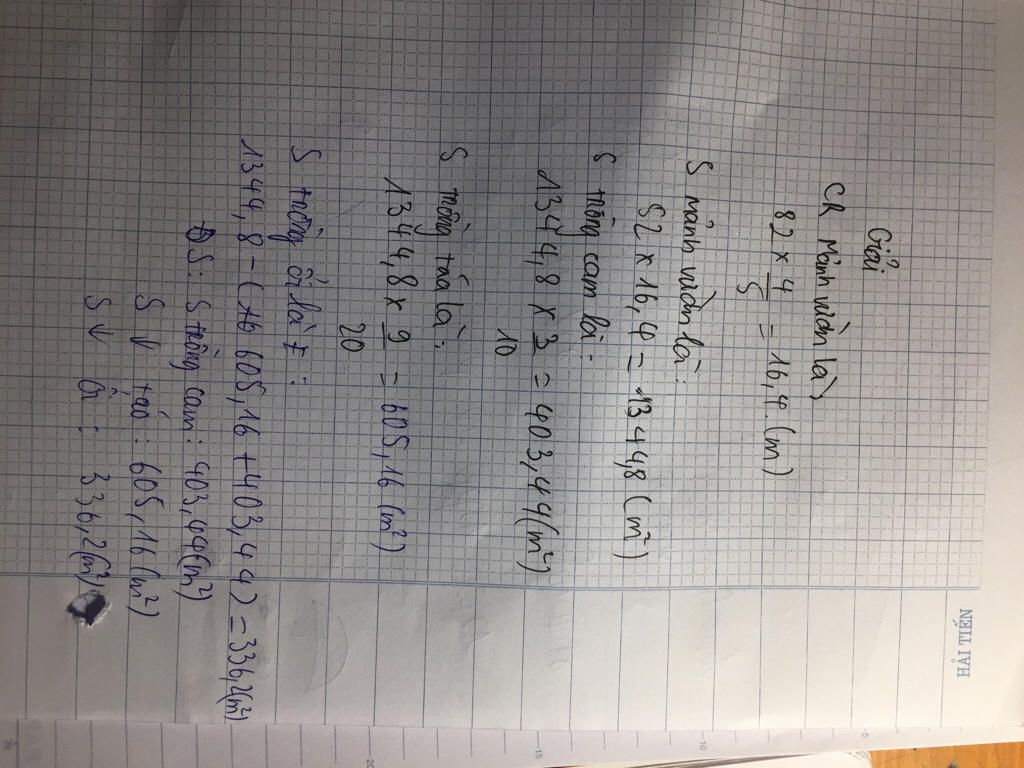 HẢI TIẾN
Giải
CR Mảnh vườn là
82 × 4/5 = 16,4 (m)
S mảnh vườn là:
82 × 16,4 = 1344,8 (m²)
S trồng cam là:
1344,8 × 3/10 = 403,44 (m²)
S trồng táo là:
1344,8 × 9/20 = 605,16 (m²)
S trồng ổi là:
1344,8 - ( 605,16 + 403,44 ) = 336,2 (m²)
ĐS: S trồng cam: 403,44 (m²)
S ↓ táo: 605,16 (m²)
S ↓ ổi: 336,2 (m²)
5
10
15
20